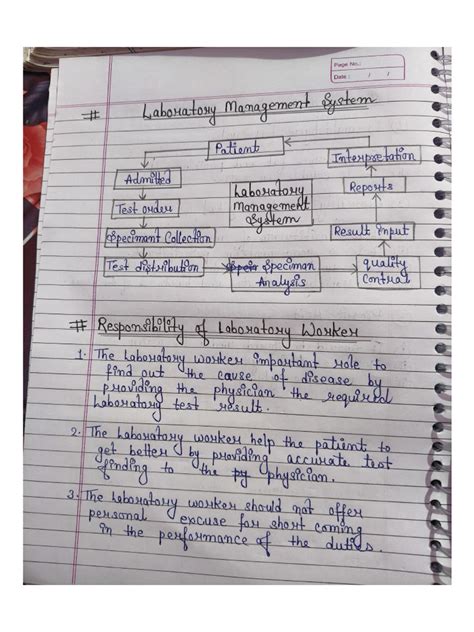 Page No.:
Date : / /
# Laboratory Management System
Patient
Interpretation
Admitted
Reports
Laboratory
Management
System
Test order
Result input
Specimant Collection
Test distribution
Speciman
Analysis
quality
Control
# Responsibility of Laboratory Worker
1. The Laboratory worker important role to
find out the cause of disease by
providing the physician the required
Laboratory test result.
2. The Laboratory worker help the patient to
get better by providing accurate test
finding to the py physician.
3. The Laboratory worker should not offer
personal excuse for short coming
in the performance of the duties.